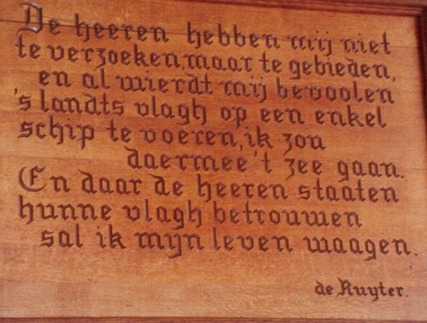 De heeren hebben mij niet
te verzoeken, maar te gebieden,
en al wierdt mij bevoolen
's landts vlagh op een enkel
schip te voeren, ik zou
daermee 't zee gaan.
En daar de heeren staaten
hunne vlagh betrouwen
sal ik mijn leven waagen.
de Ruyter.